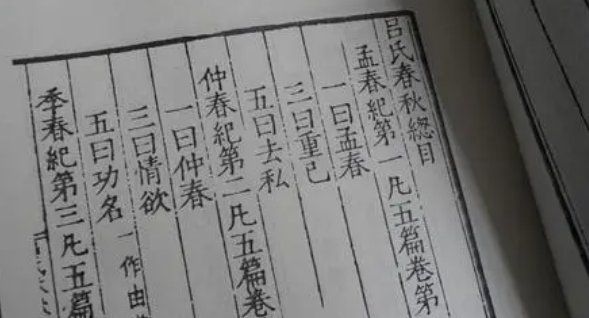 呂氏春秋總目
孟春紀第一凡五篇卷第
一曰孟春
三曰重己
五曰去私
仲春紀第二凡五篇卷
一曰仲春
三曰情欲
五曰功名一作由
季春紀第三凡五篇